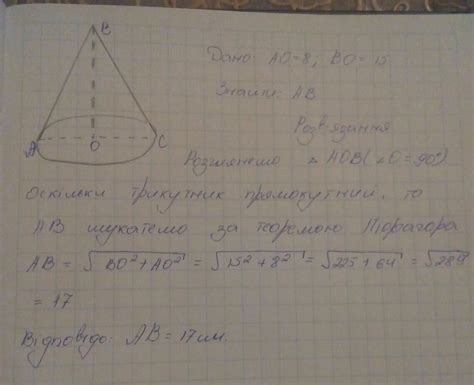 B
Дано: AO=8, BO=15
Знайти: AB
Розв'язання
A O C
Розглянемо △ AOB (∠O=90°)
оскільки трикутник прямокутний, то
AB шукатемо за теоремою Піфагора
AB = √BO²+AO² = √15²+8² = √225+64 = √289
= 17
Відповідь: AB = 17 см.